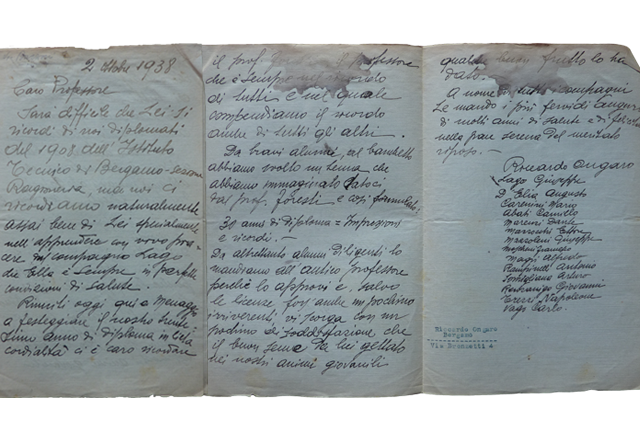 2 Ottobre 1938
Caro Professore
Sarà difficile che Lei si
ricordi di noi diplomati
del 1908 dell'Istituto
Tecnico di Bergamo - sezione
Ragioneria, ma noi ci
ricordiamo naturalmente
assai ben di Lei specialmente
nell'apprendere con vivo pia-
cere dal compagno Lago
che Ella è sempre in perfette
condizioni di salute.
Riuniti oggi qui a Menaggio
a festeggiare il nostro trente-
simo anno di diploma in lieta
cordialità ci è caro ricordare
il prof. il professore
che è sempre nel ricordo
di tutti e nel quale
compendiamo il ricordo
anche di tutti gli altri.
Da bravi alunni, al banchetto
abbiamo svolto un tema che
abbiamo immaginato datoci
dal prof. Foresti e così formulato:
30 anni di diploma = Impressioni
e ricordi. —
Da altrettanto alunni diligenti lo
mandiamo all'antico professore
perchè lo approvi e, salvo
le licenze fors'anche un pochino
irriverenti, vi scorga con un
pochino di soddisfazione che
il buon seme da lei gettato
nei nostri animi giovanili
qualche buon frutto lo ha
dato.
A nome di tutti i compagni
Le mando i più fervidi auguri
di molti anni di salute e di
nella pace serena del meritato
riposo. —
Riccardo Ongaro
Lago Giuseppe
D'Elia Augusto
Carenini Mario
Abati Camillo
Marenzi Davide
Ettore
Mazzoleni Giuseppe
Francesco
Magri Alfredo
Antonio
Arturo
Giovanni
Terzi Napoleone
Vagi Carlo
Riccardo Ongaro
Bergamo
Via Donizetti 4